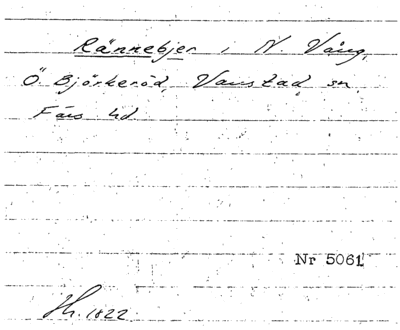 Rännebjer i N. Vång,
Ö. Björkeröd, Vanstad sn
Färs hd
Nr 5061
Hh. 1822